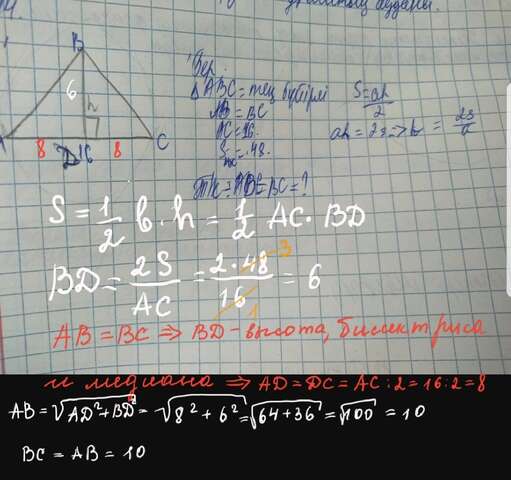 B
6
h
8 D 16 8 C
Бер.
△ABC = тең бүйірлі
AB = BC
AC = 16
S = 48
S = ah/2
ah = 2s => h = 2s/a
BC = ?
S = 1/2 b · h = 1/2 AC · BD
BD = 2S/AC = 2·48/16 = 6
3
1
AB = BC ⇒ BD - высота, биссектриса
и медиана ⇒ AD = DC = AC : 2 = 16 : 2 = 8
AB = √AD² + BD² = √8² + 6² = √64 + 36 = √100 = 10
BC = AB = 10